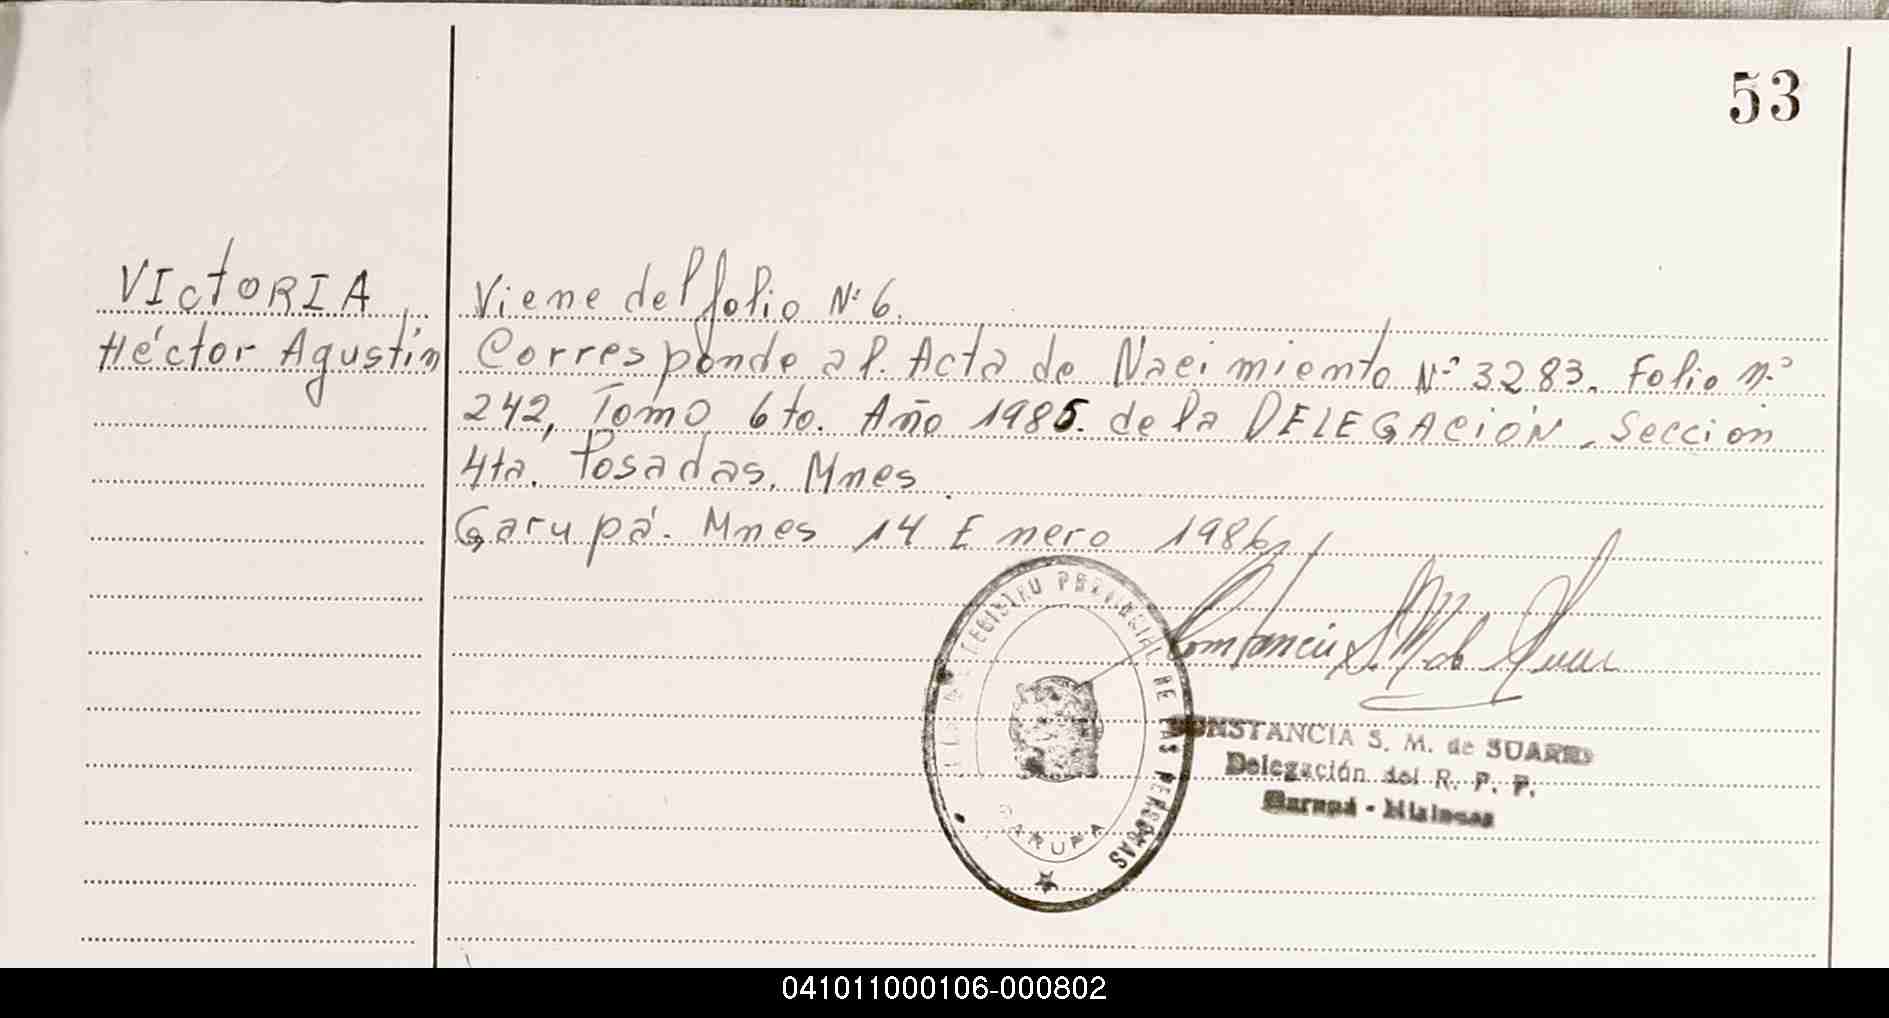 53
VIctORIA
Héctor Agustín
Viene del folio Nº 6.
Corresponde al. Acta de Nacimiento Nº 3283. Folio n.º
242, Tomo 6to. Año 1985. de la DELEGAcióN. Sección
4ta. Posadas. Mnes.
Garupá. Mnes 14 Enero 1986
REGISTRO PROVINCIAL DE LAS PERSONAS
GARUPA
Constancia S. M. de Suarez
CONSTANCIA S. M. de SUAREZ
Delegación del R. P. P.
Garupá - Misiones
041011000106-000802